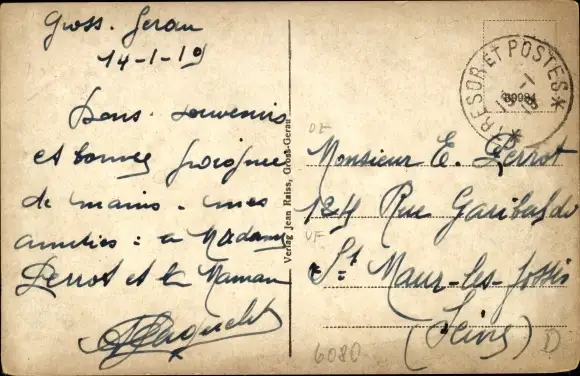 Gross-Gerau
14-1-19
Bons souvenirs
et bonnes poignées
de mains - mes
amitiés : à Madame
Perrot et la Maman
Verlag Jean Raiss, Gross-Gerau
TRESOR ET POSTES *
DE
Monsieur E. Perrot
124 Rue Garibaldi
VF
St Maur-les-Fossés
(Seine)
6080
D